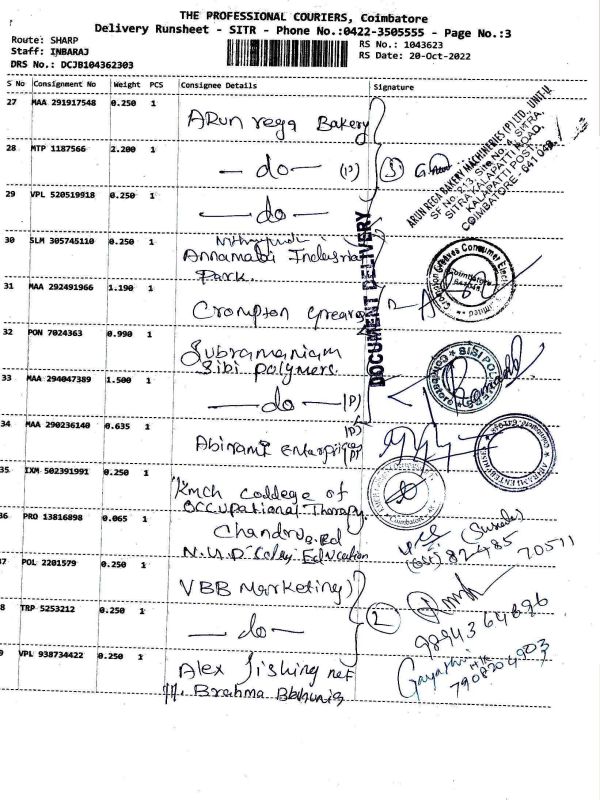 THE PROFESSIONAL COURIERS, Coimbatore
Delivery Runsheet - SITR - Phone No.:0422-3505555 - Page No.:3
Route: SHARP
Staff: INBARAJ
DRS No.: DCJB104362303
RS No.: 1043623
RS Date: 20-Oct-2022
S No Consignment No Weight PCS Consignee Details Signature
27 MAA 291917548 0.250 1
Arun rega Bakery
28 MTP 1187566 2.200 1
— do — (P) 3
29 VPL 520519918 0.250 1
— do —
ARUN REGA BAKERY MACHINERIES (P) LTD., UNIT-II,
KALAPATTI POST,
DOCUMENT DELIVERY
30 SLM 305745110 0.250 1
Annamalai Industrial
Park.
31 MAA 292491966 1.190 1
Crompton Greaves
32 PON 7024363 0.990 1
Subramaniam
Sibi polymers.
33 MAA 294047389 1.500 1
— do — (P)
34 MAA 290236140 0.635 1
Abirami Enterprises
35 IXM 502391991 0.250 1
Kmch College of
Occupational Therapy.
36 PRO 13816898 0.065 1
Chandru
Education
(Surender)
82485
70511
37 POL 2201579 0.250 1
VBB Marketing
38 TRP 5253212 0.250 1
— do — 2
9894364896
39 VPL 938734422 0.250 1
Alex fishing net
Brahma
Gayathri
7908204903